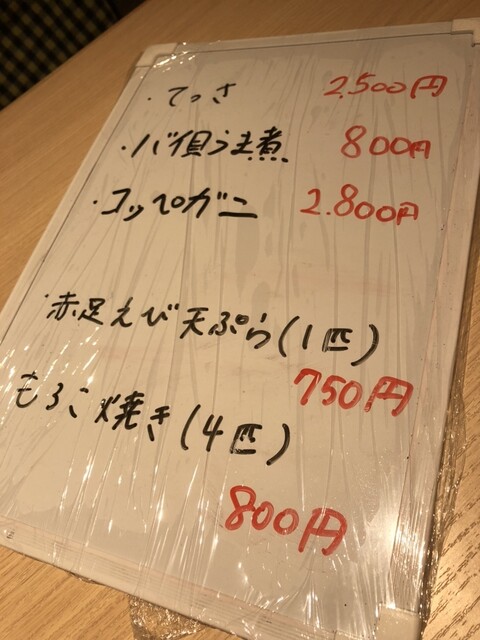 ・てっさ 2,500円
・バイ貝うま煮 800円
・コッペガニ 2.800円
・赤足えび天ぷら(1匹)
750円
もろこ焼き(4匹)
800円